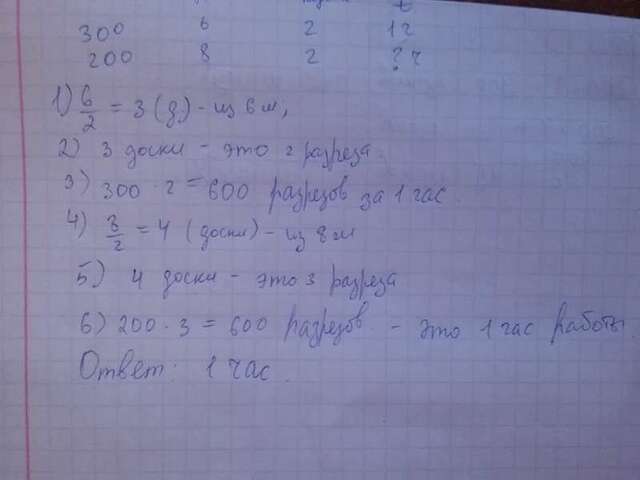 300 6 2 1 ч
200 8 2 ? ч
1) 6/2 = 3 (д) - из 6 м,
2) 3 доски - это 2 разреза
3) 300 · 2 = 600 разрезов за 1 час
4) 8/2 = 4 (доски) - из 8 м
5) 4 доски - это 3 разреза
6) 200 · 3 = 600 разрезов - это 1 час работы.
Ответ: 1 час.